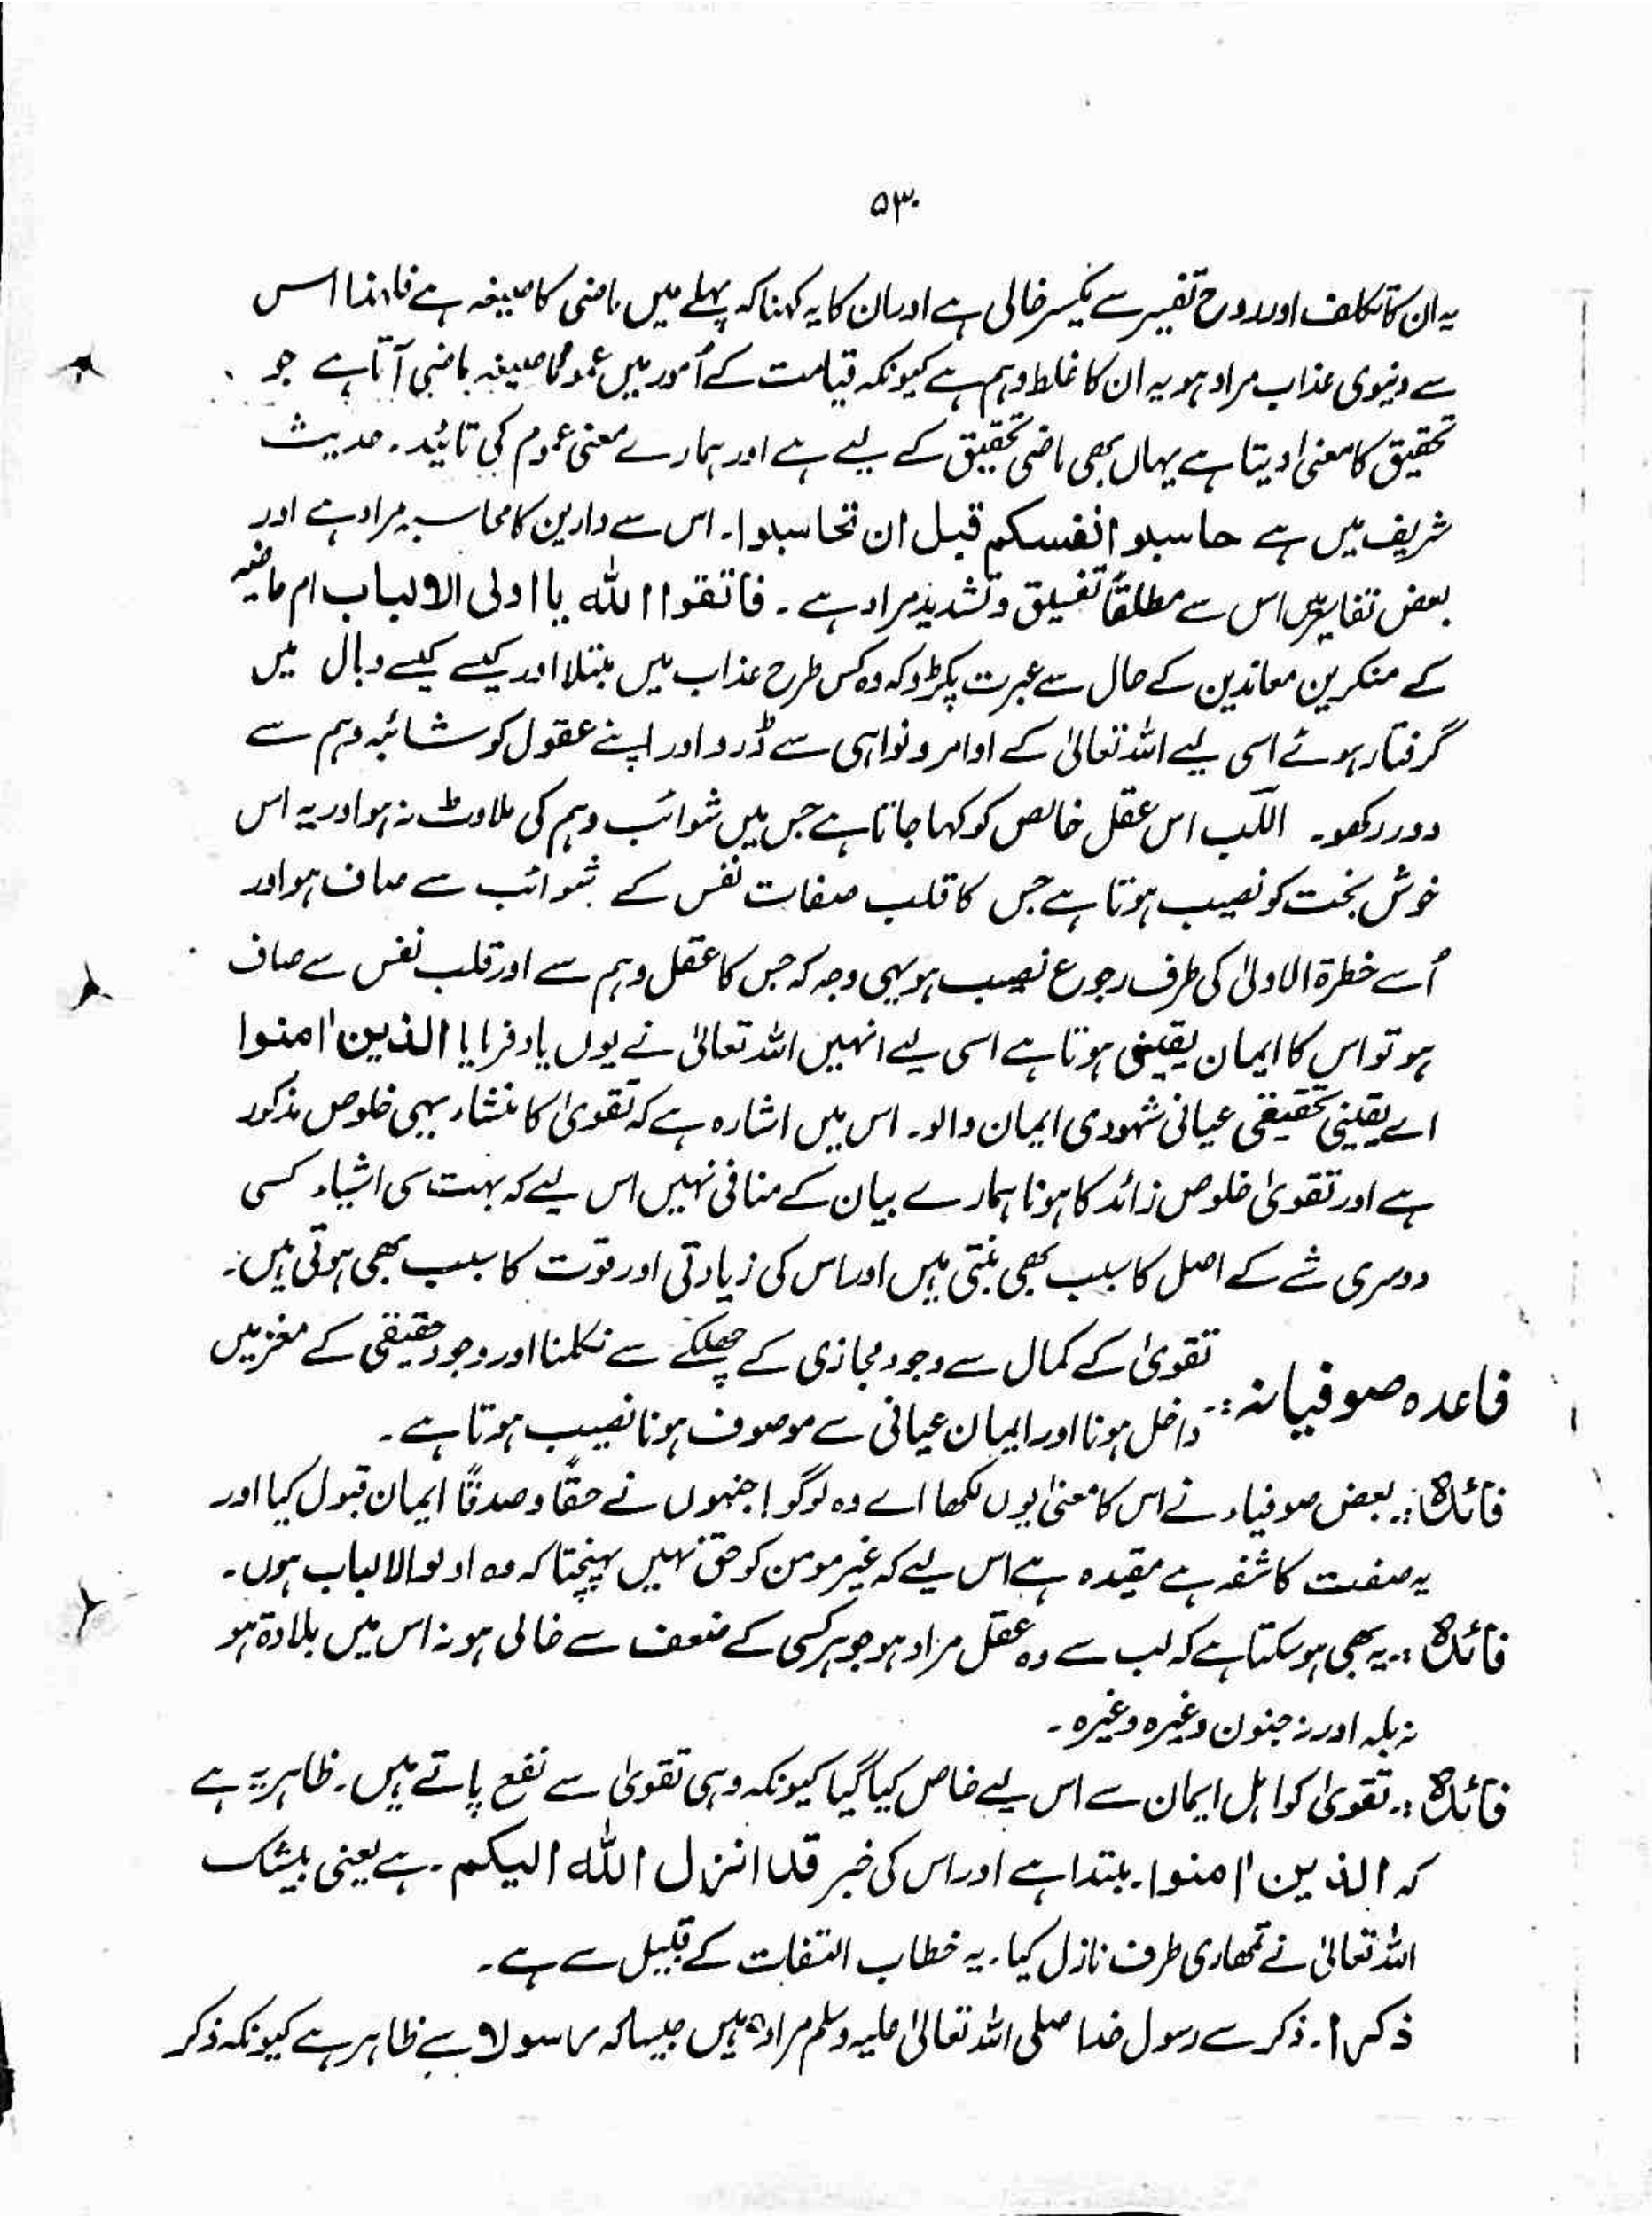 ۵۳۰
یہ ان کا تکلف اور روح تفسیر سے یکسر خالی ہے اور ان کا یہ کہنا کہ پہلے میں ماضی کا صیغہ ہے فلہٰذا اس
سے دنیوی عذاب مراد ہو یہ ان کا غلط وہم ہے کیونکہ قیامت کے اُمور میں عموماً صیغہ ماضی آتا ہے جو
تحقیق کا معنیٰ دیتا ہے یہاں بھی ماضی تحقیق کے لیے ہے اور ہمارے معنی عموم کی تائید ۔ حدیث
شریف میں ہے حاسبوا انفسکم قبل ان تحاسبوا ۔ اس سے دارین کا محاسبہ مراد ہے اور
بعض تفاسیر میں اس سے مطلقاً تضییق و تشدید مراد ہے ۔ فاتقوا اللہ یا اولی الالباب امم ماضیہ
کے منکرین معاندین کے حال سے عبرت پکڑو کہ وہ کس طرح عذاب میں مبتلا اور کیسے کیسے وبال میں
گرفتار ہوئے اسی لیے اللہ تعالیٰ کے اوامر و نواہی سے ڈرو اور اپنے عقول کو شائبہ وہم سے
دور رکھو ۔ اللب اس عقل خالص کو کہا جاتا ہے جس میں شوائب وہم کی ملاوٹ نہ ہو اور یہ اس
خوش بخت کو نصیب ہوتا ہے جس کا قلب صفات نفس کے شوائب سے صاف ہو اور
اُسے خطرۃ الاولیٰ کی طرف رجوع نصیب ہو یہی وجہ کہ جس کا عقل وہم سے اور قلب نفس سے صاف
ہو تو اس کا ایمان یقینی ہوتا ہے اسی لیے انہیں اللہ تعالیٰ نے یوں یاد فرمایا الذین اٰمنوا
اے یقینی تحقیقی عیانی شہودی ایمان والو ۔ اس میں اشارہ ہے کہ تقویٰ کا منشاء یہی خلوص مذکور
ہے اور تقویٰ خلوص زائد کا ہونا ہمارے بیان کے منافی نہیں اس لیے کہ بہت سی اشیاء کسی
دوسری شے کے اصل کا سبب بھی بنتی ہیں اور اس کی زیادتی اور قوت کا سبب بھی ہوتی ہیں ۔
قاعدہ صوفیانہ :۔ تقویٰ کے کمال سے وجود مجازی کے چھلکے سے نکلنا اور وجود حقیقی کے مغز میں
داخل ہونا اور ایمان عیانی سے موصوف ہونا نصیب ہوتا ہے ۔
فائدہ :۔ بعض صوفیاء نے اس کا معنیٰ یوں لکھا اے وہ لوگو ! جنہوں نے حقاً و صدقاً ایمان قبول کیا اور
یہ صفت کاشفہ ہے مقیدہ ہے اس لیے کہ غیر مومن کو حق نہیں پہنچتا کہ وہ اولوا الالباب ہوں ۔
فائدہ :۔ یہ بھی ہوسکتا ہے کہ لب سے وہ عقل مراد ہو جو ہر کسی کے ضعف سے خالی ہو نہ اس میں بلادۃ ہو
نہ بلہ اور نہ جنون وغیرہ وغیرہ ۔
فائدہ :۔ تقویٰ کو اہل ایمان سے اس لیے خاص کیا گیا کیونکہ وہی تقویٰ سے نفع پاتے ہیں ۔ ظاہر یہ ہے
کہ الذین اٰمنوا ۔ مبتدا ہے اور اس کی خبر قد انزل اللہ الیکم ۔ ہے یعنی بیشک
اللہ تعالیٰ نے تمھاری طرف نازل کیا ۔ یہ خطاب التفات کے قبیل سے ہے ۔
ذکرا ۔ ذکر سے رسول خدا صلی اللہ تعالیٰ علیہ وسلم مراد ہیں جیسا کہ رسولا سے ظاہر ہے کیونکہ ذکر